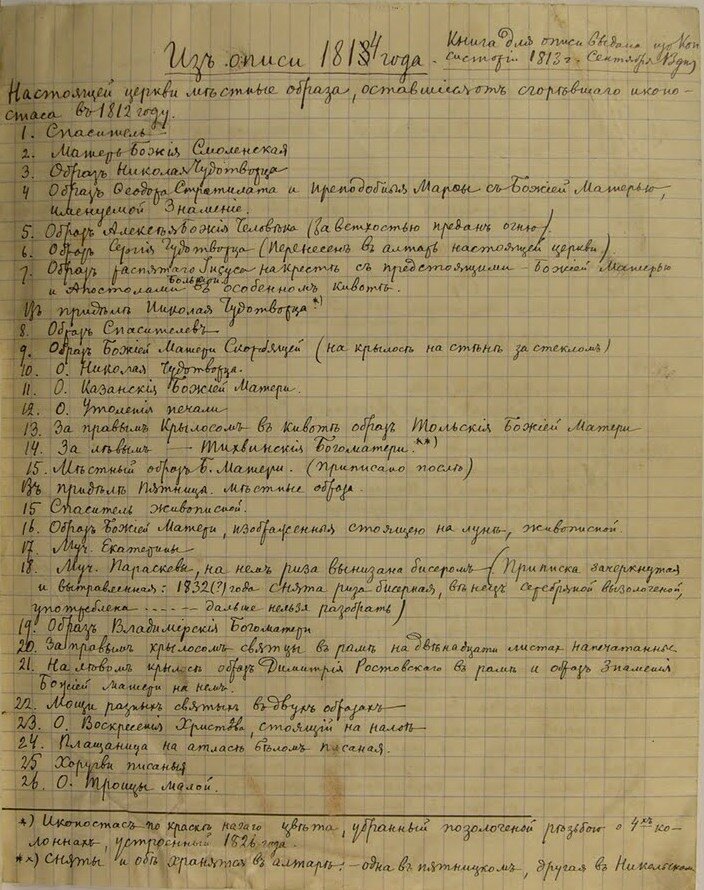 Изъ описи 1814 года. Книга для описи выдана изъ Кон-
систоріи 1813 г. Сентября 13 дня
Настоящей церкви мѣстные образа, оставшіеся отъ сгорѣвшаго иконо-
стаса въ 1812 году.
1. Спаситель
2. Матерь Божія Смоленская
3. Образъ Николая Чудотворца
4 Образъ Ѳеодора Стратилата и преподобныя Марѳы съ Божіей Матерью,
именуемой Знаменіе.
5. Образъ Алексѣя Божія Человѣка (За ветхостью преданъ огню).
6. Образъ Сергія Чудотворца (Перенесенъ въ алтарь настоящей церкви)
7. Образъ распятаго Іисуса на крестѣ съ предстоящими - Божіей Матерью
и Апостолами большой въ особенномъ кивотѣ.
Въ придѣлѣ Николая Чудотворца *)
8. Образъ Спасителевъ
9. Образъ Божіей Матери Скорбящей (на крылосѣ на стѣнѣ за стекломъ)
10. О. Николая Чудотворца.
11. О. Казанскія Божіей Матери.
12. О. Утоленія печали
13. За правымъ Крылосомъ въ кивотѣ образъ Толгскія Божіей Матери
14. За лѣвымъ — Тихвинскія Богоматери. **)
15. Мѣстный образъ Б. Матери. (приписано послѣ)
Въ придѣлѣ Пятница. мѣстные образа.
15 Спаситель живописной.
16. Образъ Божіей Матери, изображенныя стоящею на лунѣ, живописной.
17. Муч. Екатерины
18. Муч. Параскевы, на немъ риза вынизана бисеромъ (Приписка зачеркнутая
и вытравленная: 1832(?) года снята риза бисерная, вѣнецъ серебряной вызолоченой,
употреблена - - - - - дальше нельзя разобрать)
19. Образъ Владимерскія Богоматери
20. За правымъ крылосомъ святцы въ рамѣ на двѣнадцати листахъ напечатанные
21. На лѣвомъ крылосѣ образъ Димитрія Ростовскаго въ рамѣ и образъ Знаменія
Божіей Матери на немъ.
22. Мощи разныхъ святыхъ въ двухъ образахъ
23. О. Воскресенія Христова, стоящій на налоѣ
24. Плащаница на атласѣ бѣломъ писаная.
25 Хоругви писаныя
26. О. Троицы малой.
*) Иконостасъ по краскѣ цвѣта, убранный позолоченой рѣзьбою о 4хъ ко-
лоннахъ, устроенный 1826 года.
**) Сняты и обѣ хранятся въ алтарѣ: - одна въ пятницкомъ, другая въ Никольскомъ